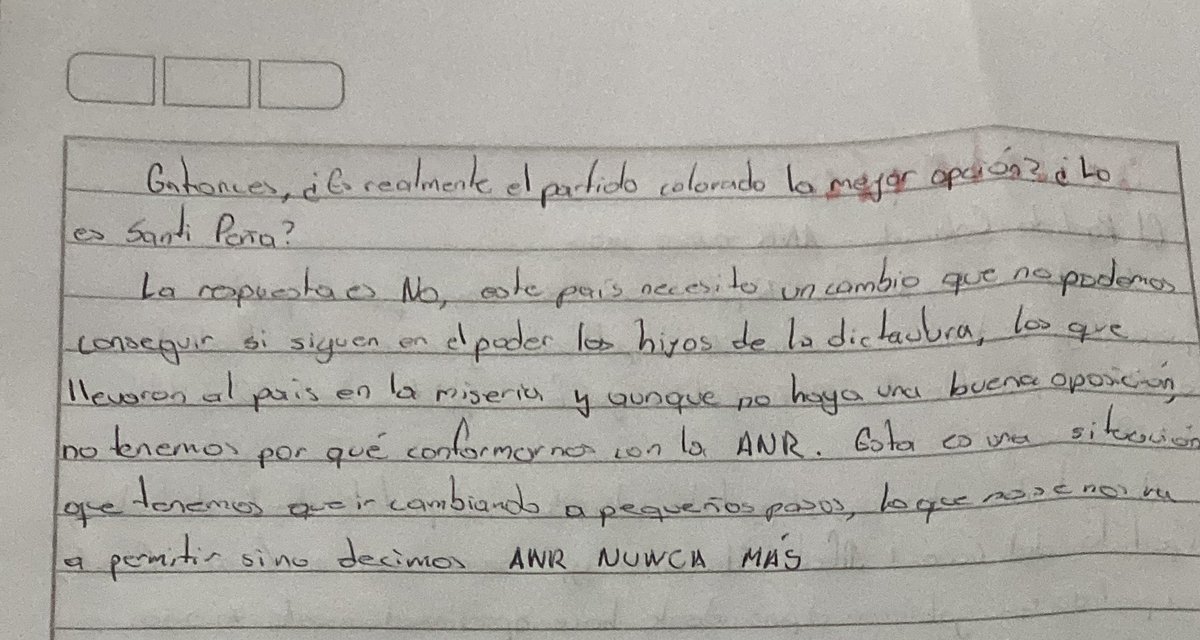 Entonces, ¿Es realmente el partido colorado la mejor opción? ¿Lo
es Santi Peña?
La respuesta es No, este país necesita un cambio que no podemos
conseguir si siguen en el poder los hijos de la dictadura, los que
llevaron al pais en la miseria y aunque no haya una buena oposición,
no tenemos por qué conformarnos con la ANR. Esta es una situación
que tenemos que ir cambiando a pequeños pasos, lo que no se nos va
a permitir sino decimos ANR NUNCA MÁS